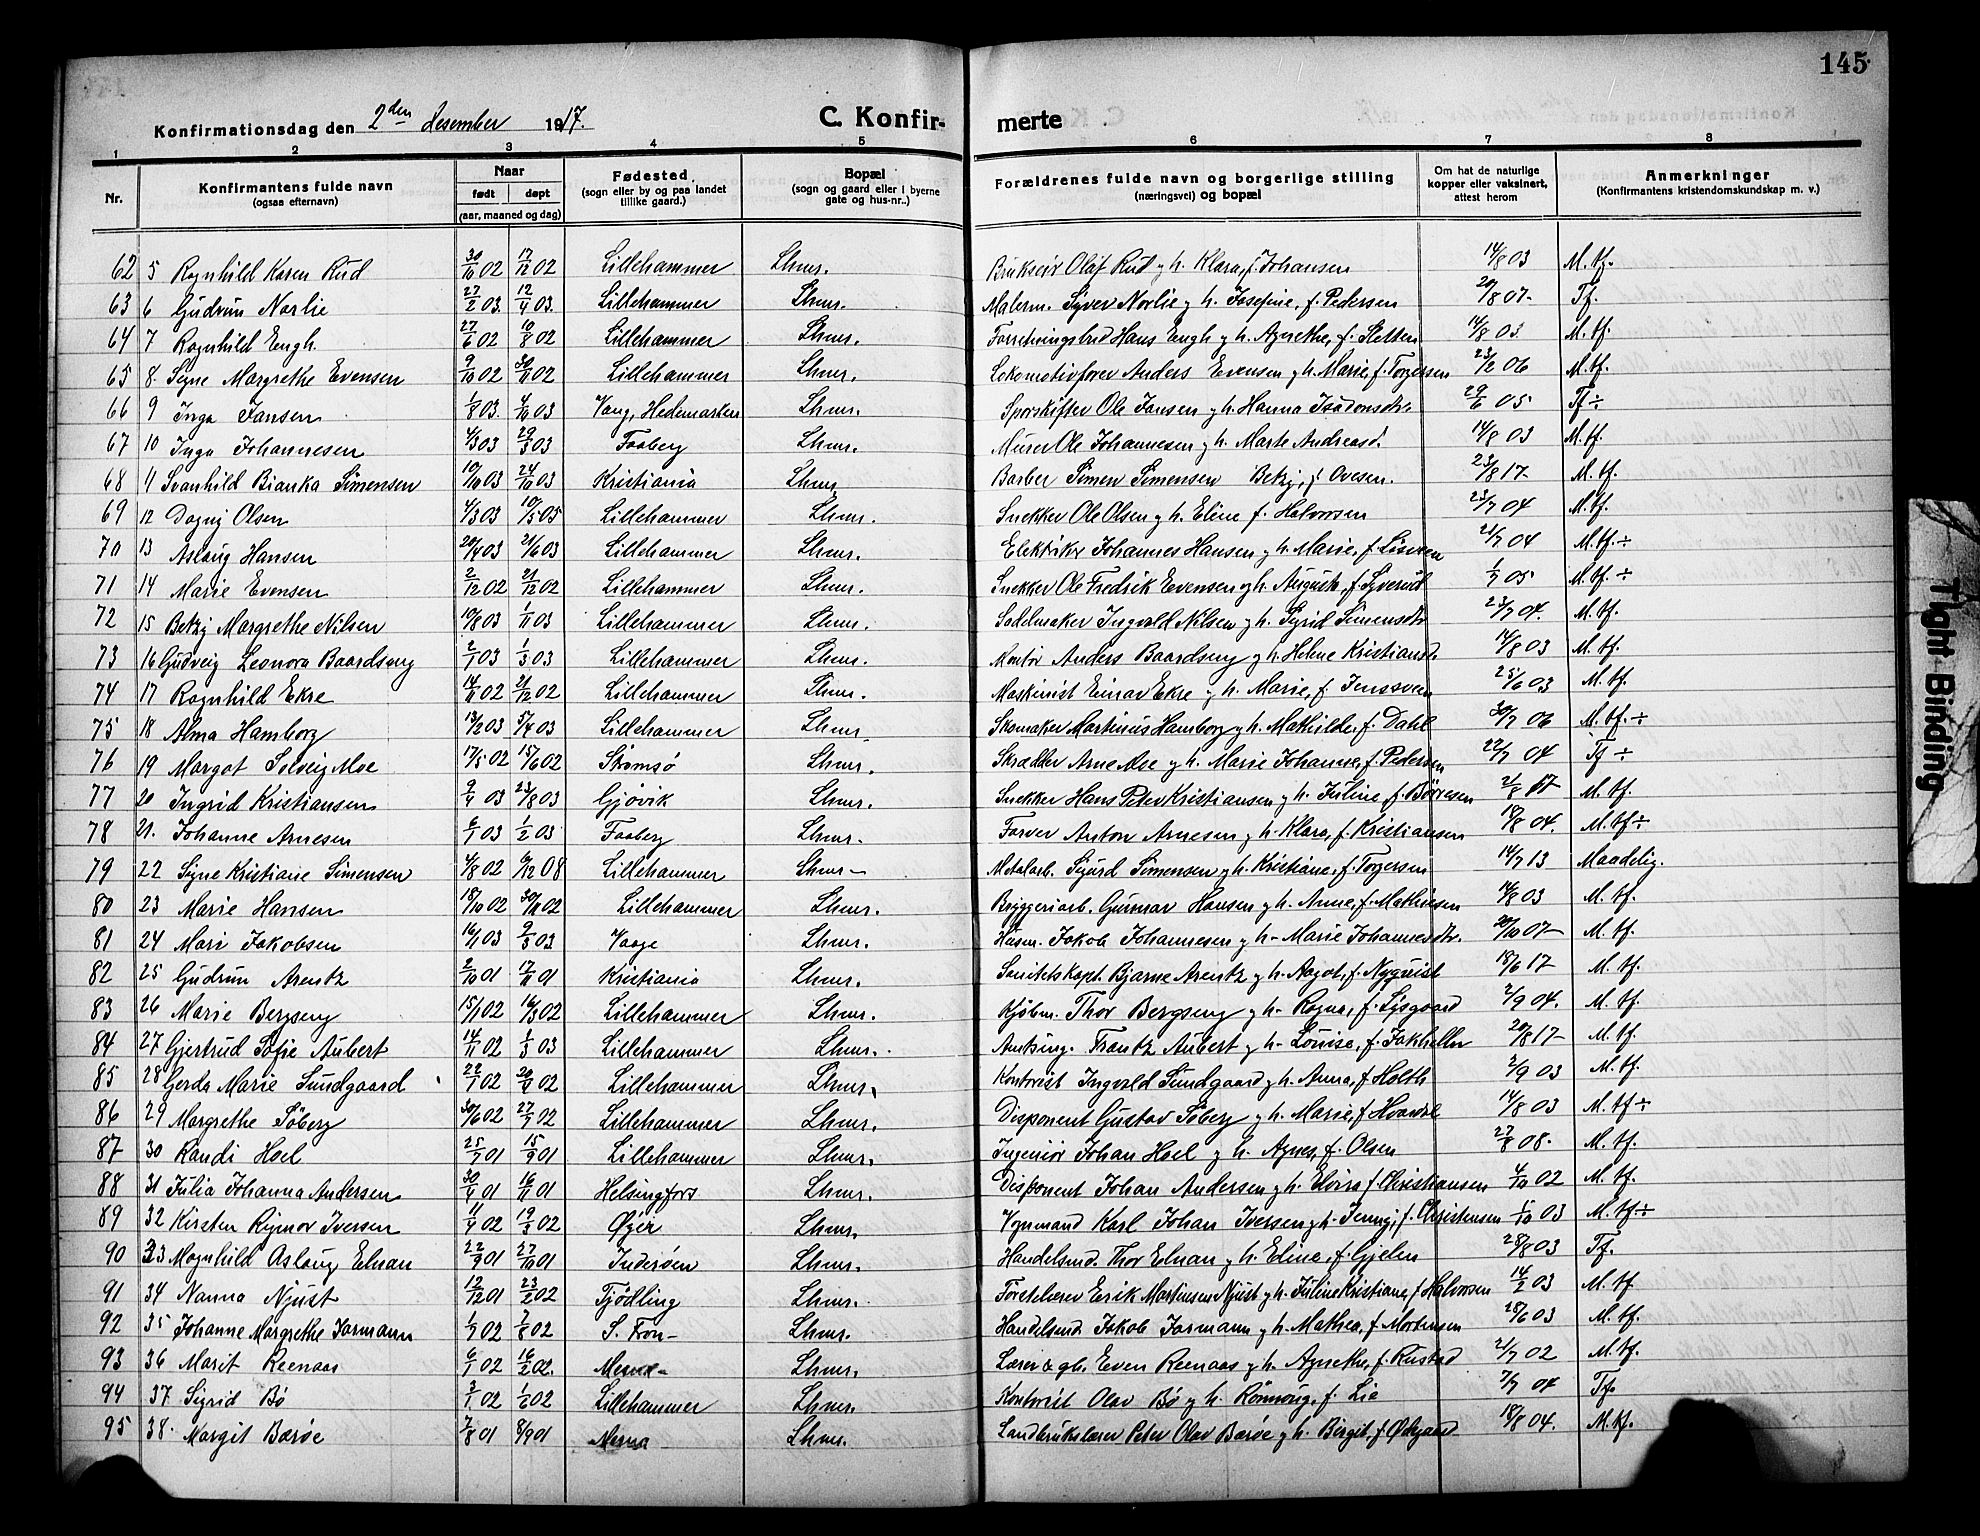 145
Konfirmationsdag den 2den desember 1917. C. Konfirmerte
1 2 3 4 5 6 7 8
Nr. Konfirmantens fulde navn (ogsaa efternavn) Naar født døpt (aar, maaned og dag) Fødested (sogn eller by og paa landet tillike gaard.) Bopæl (sogn og gaard eller i byerne gate og hus-nr.) Forældrenes fulde navn og borgerlige stilling (næringsvei) og bopæl Om hat de naturlige kopper eller vaksinert, attest herom Anmerkninger (Konfirmantens kristendomskundskap m. v.)
62 5 Ragnhild Karen Rud 30/10 02 17/12 02 Lillehammer Lhmr. Olaf Rud g h. Klara, f. Johansen 14/8 03 M. tf.
63 6 Gudrun Norlie 27/2 03. 12/4 03. Lillehammer Lhmr. Malerm. Syver Norlie g h. Josefine, f. Pedersen 20/8 07- Tf.
64 7 Ragnhild Engh. 27/6 02 10/8 02 Lillehammer Lhmr. Forretningsbud Hans Engh g h. Agnethe, f. Sletten 14/8 03. M. tf.
65 8. Signe Margrethe Evensen 9/10 02 30/11 02 Lillehammer Lhmr. Lokomotivfører Anders Evensen g h. Marie, f. Torgersen 23/2 06 M. tf.
66 9 Inga Jansen 1/8 03. 4/10 03 Vang, Hedemarken Lhmr. Sporskifter Ole Jansen g h. Hanna 29/6 05 Tf ÷
67 10 Inga Johannesen 4/3 03 29/3 03 Faaberg Lhmr. Murer Ole Johannesen g h. Marte Andreasd. 14/8 03 M. tf.
68 11 Svanhild Bianka Simensen 10/10 03 24/10 03 Kristiania Lhmr Barber Simen Simensen Betzy, f. Ovesen. 23/8 17- M. tf.
69 12 Dagny Olsen 4/3 03 10/5 05 Lillehammer Lhmr. Snekker Ole Olsen g h. Eline f. Halvorsen 23/7 04 M. tf.
70 13 Aslaug Hansen 20/4 03 21/6 03 Lillehammer Lhmr. Elektriker Johannes Hansen g h. Marie, f. 21/7 04 M. tf. ÷
71 14 Marie Evensen 2/12 02 21/12 02 Lillehammer Lhmr. Snekker Ole Fredrik Evensen g h. Augusta, f. Syverud 1/7 05 M. tf. ÷
72 15 Betzy Margrethe Nilsen 10/8 03 1/11 03 Lillehammer Lhmr. Sadelmaker Ingvald Nilsen g h. Sigrid Simensdtr 23/7 04. M. tf.
73 16 Gudveig Leonora Baardseng 2/1 03 1/3 03 Lillehammer Lhmr. Kontor Anders Baardseng g h. Helene Kristiansd. 14/8 03 M. tf.
74 17 Ragnhild Ekre 14/11 02 21/12 02 Lillehammer Lhmr. Maskinist Einar Ekre g h. Marie, f. Jenssveen 25/6 03 M. tf.
75 18 Alma Hamborg 13/2 03 5/4 03 Lillehammer Lhmr. Skomaker Martinus Hamborg g h. Mathilde, f. Dahl 30/7 06 M. tf. ÷
76 19 Margot Solveig Moe 17/5 02 15/6 02 Strømsø Lhmr. Skrædder Arne Moe g h. Marie Johanne, f. Pedersen 22/7 04 Tf ÷
77 20 Ingrid Kristiansen 9/4 03 23/8 03 Gjøvik Lhmr. Snekker Hans Peter Kristiansen g h. Juline, f. Børresen 2/8 17 M. tf.
78 21. Johanne Arnesen 6/1 03 1/2 03 Faaberg Lhmr. Farver Anton Arnesen g h. Klara, f. Kristiansen 18/8 04. M. tf ÷
79 22 Signe Kristiane Simensen 4/8 02 6/12 08 Lillehammer Lhmr- Metalarb. Sigurd Simensen g h. Kristiane, f. Torgersen 14/7 13 Maadelig.
80 23 Marie Hansen 18/10 02 30/11 02 Lillehammer Lhmr. Bryggeriarb. Gunnar Hansen g h. Anne, f. Mathiesen 14/8 03 M. tf.
81 24 Mari Jakobsen 16/1 03 9/3 03 Vaage Lhmr. Husm. Jakob Johannesen g h. Marie Johannesdtr. 20/10 07- M. tf.
82 25 Gudrun Arentz 2/10 01 17/11 01 Kristiania Lhmr. Sanitetskapt. Bjarne Arentz g h. Aagot, f. Nyquist 18/6 17- M. tf.
83 26 Marie Bergseng 15/1 02 16/3 02 Lillehammer Lhmr. Kjøbm. Thor Bergseng g h. Ragna, f. Lysgaard 2/9 04. M. tf.
84 27 Gjertrud Sofie Aubert 14/11 02 1/3 03 Lillehammer Lhmr. Amtsing. Frantz Aubert g h. Louise, f. Jakheller 20/8 17- M. tf.
85 28 Gerda Marie Sundgaard 22/7 02 30/11 02 Lillehammer Lhmr. Kontorist Ingvald Sundgaard g h. Anna, f. Holth 2/9 03 M. tf.
86 29 Margrethe Søberg 30/6 02 27/7 02 Lillehammer Lhmr. Disponent Gustav Søberg g h. Marie, f. 14/8 03 M. tf ÷
87 30 Randi Hoel 25/7 01 15/9 01 Lillehammer Lhmr. Ingeniør Johan Hoel g h. Agnes, f. Olsen 27/8 08. M. tf.
88 31 Julia Johanna Andersen 30/4 01 16/11 01 Helsingfors Lhmr. Disponent Johan Andersen g h. Elvira f. Christiansen 4/10 02 M. tf.
89 32 Kirsten Rigmor Iversen 11/4 02 19/5 02 Øyer Lhmr. Vognmand Karl Johan Iversen g h. Jenny, f. Christensen 1/10 03 M. tf ÷
90 33 Magnhild Aslaug Elnan 22/9 01 27/10 01 Inderøen Lhmr. Handelsmd. Thor Elnan g h. Eline, f. Gjelen 28/8 03 Tf.
91 34 Nanna Njust 12/12 01 23/2 02 Fjødling Lhmr. Erik Martinsen Njust g h. Juline Kristiane, f. Halvorsen 14/2 03 M. tf
92 35 Johanne Margrethe Jarmann 1/7 02 3/8 02 S. Fron- Lhmr. Handelsmd. Jakob Jarmann g h. Mathea, f. Mortensen 28/6 03 M. tf.
93 36 Marit Reenaas 6/1 02 16/2 02. Mesna- Lhmr. Lærer & gb. Even Reenaas g h. Agnethe, f. Rustad 2/7 02 M. tf.
94 37 Sigrid Bø 3/1 02 1/6 02 Lillehammer Lhmr. Kontorist Olav Bø g h. Rønnaug, f. Lie 7/7 04 Tf.
95 38. Margit Barøe 7/8 01 8/9 01 Mesna Lhmr. Landbrukslærer Peter Olav Barøe g h. Birgit, f. Ødegaard 18/8 04. M. tf.
Tight Binding